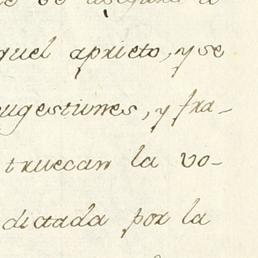 quel aprieto, y se
sugestiones, y fra-
truecan la vo-
dictada por la